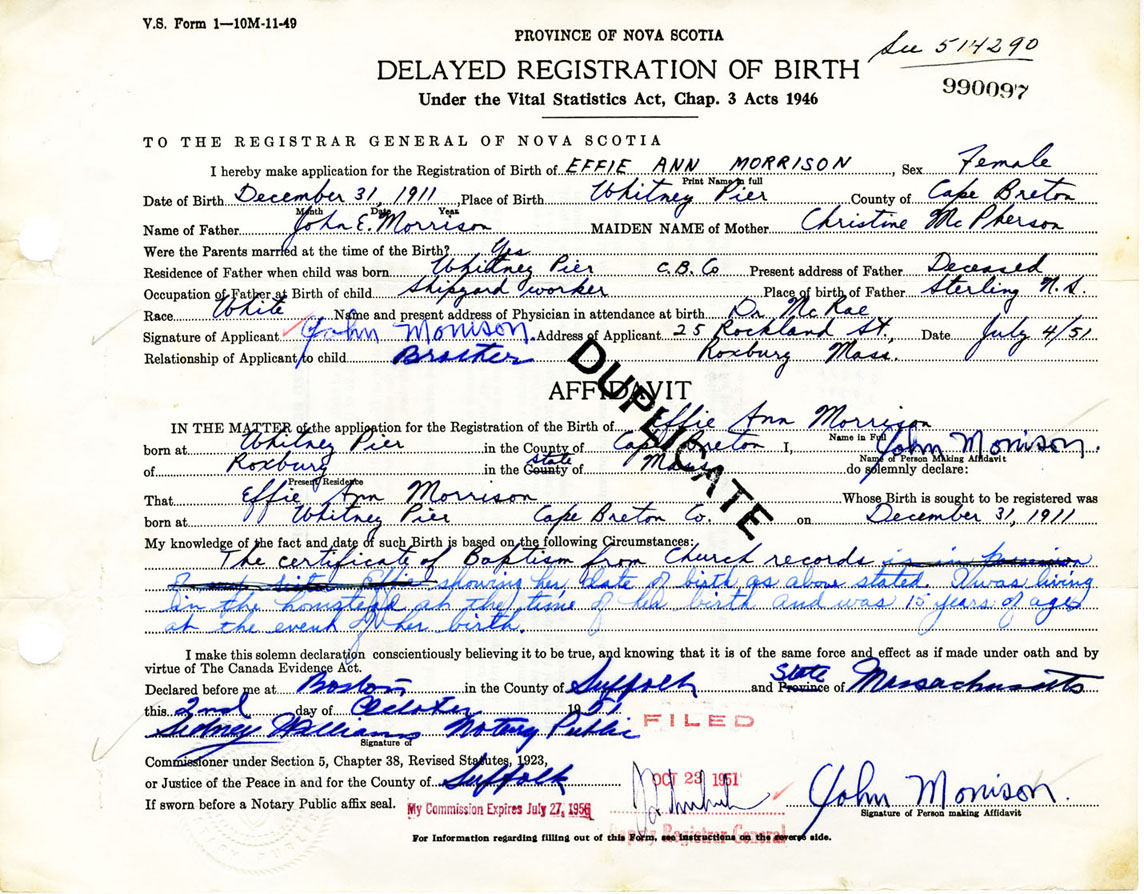 V.S. Form 1—10M-11-49
PROVINCE OF NOVA SCOTIA
See 514290
DELAYED REGISTRATION OF BIRTH
990097
Under the Vital Statistics Act, Chap. 3 Acts 1946
TO THE REGISTRAR GENERAL OF NOVA SCOTIA
I hereby make application for the Registration of Birth of EFFIE ANN MORRISON, Sex Female
Print Name in full
Date of Birth December 31, 1911, Place of Birth Whitney Pier County of Cape Breton
Month Date Year
Name of Father John E. Morrison MAIDEN NAME of Mother Christine McPherson
Were the Parents married at the time of the Birth? Yes
Residence of Father when child was born Whitney Pier C.B. Co Present address of Father Deceased
Occupation of Father at Birth of child Shipyard worker Place of birth of Father Sterling N.S.
Race White Name and present address of Physician in attendance at birth Dr. McRae
Signature of Applicant John Morrison. Address of Applicant 25 Rockland St, Date July 4/51
Relationship of Applicant to child Brother Roxbury Mass.
DUPLICATE
AFFIDAVIT
IN THE MATTER of the application for the Registration of Birth of Effie Ann Morrison
Name in Full
born at Whitney Pier in the County of Cape Breton I, John Morrison.
Name of Person Making Affidavit
of Roxbury in the County state of Mass do solemnly declare:
Present Residence
That Effie Ann Morrison Whose Birth is sought to be registered was
born at Whitney Pier Cape Breton Co. on December 31, 1911
My knowledge of the fact and date of such Birth is based on the following Circumstances:
The certificate of Baptism from Church records is in possession
sister Effie showing her date of birth as above stated. I was living
in the homestead at the time of her birth and was 15 years of age
at the event of her birth.
I make this solemn declaration conscientiously believing it to be true, and knowing that it is of the same force and effect as if made under oath and by
virtue of The Canada Evidence Act.
Declared before me at Boston in the County of Suffolk and Province State of Massachusetts
this 2nd day of October 1951
FILED
Sidney Williams Notary Public
Signature of
Commissioner under Section 5, Chapter 38, Revised Statutes, 1923,
or Justice of the Peace in and for the County of Suffolk
OCT 23 1951
John Morrison.
If sworn before a Notary Public affix seal. My Commission Expires July 27, 1956
Signature of Person making Affidavit
Deputy Registrar General
For Information regarding filling out of this Form, see instructions on the reverse side.